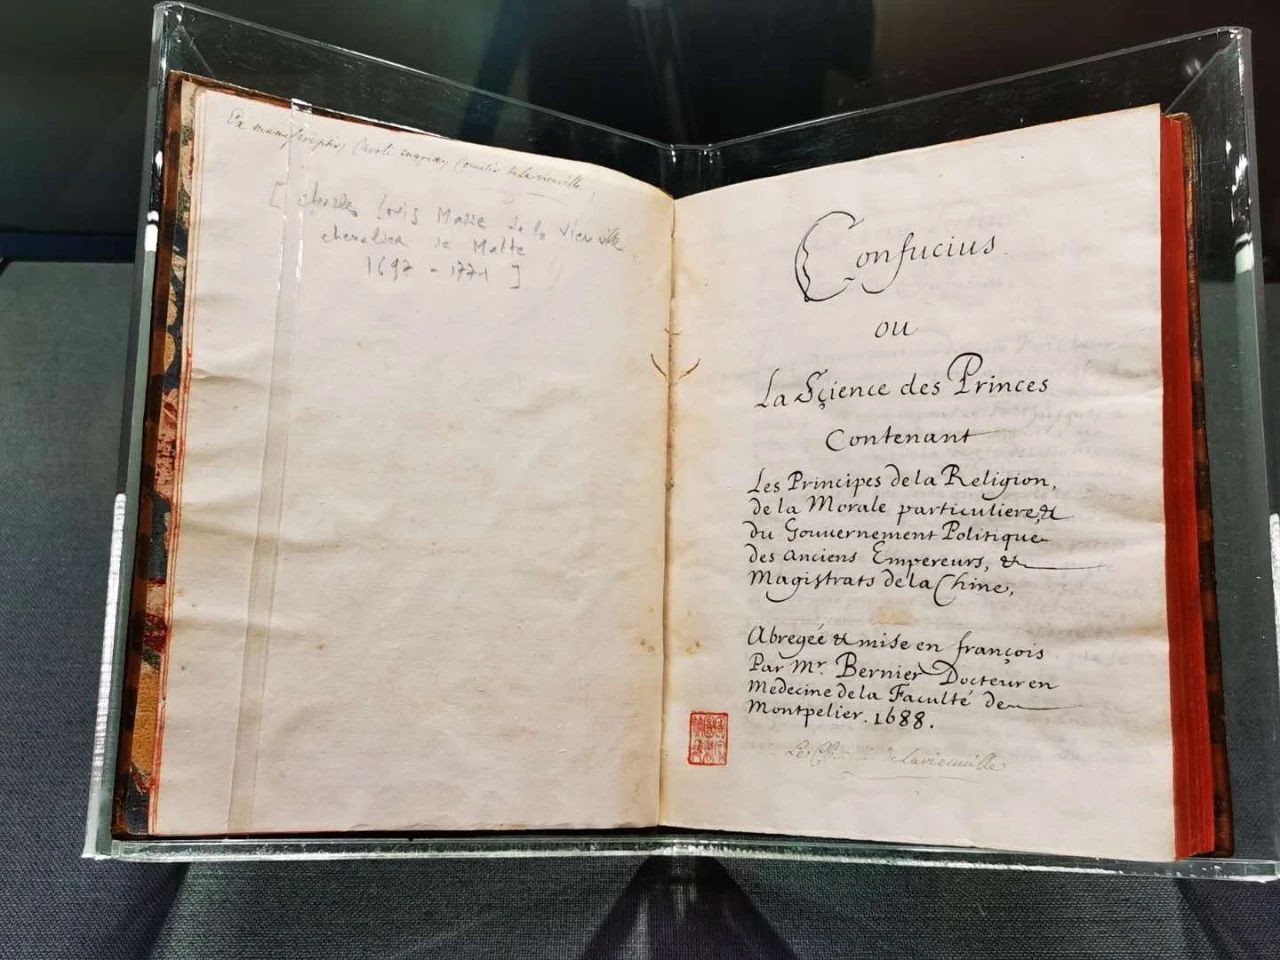 Ex manuscriptis Caroli mariæ Comitis de Lavieuville
[ charles Louis Marie de la Vieuville
chevalier de Malte
1697 - 1771 ]
Confucius
ou
La Sçience des Princes
Contenant
Les Principes de la Religion,
de la Morale particuliere, &
du Gouvernement Politique
des anciens Empereurs, &
Magistrats de la Chine,
Abregeé & mise en françois
Par Mr. Bernier Docteur en
Medecine de la Faculté de
Montpelier. 1688.
Le de Lavieuville